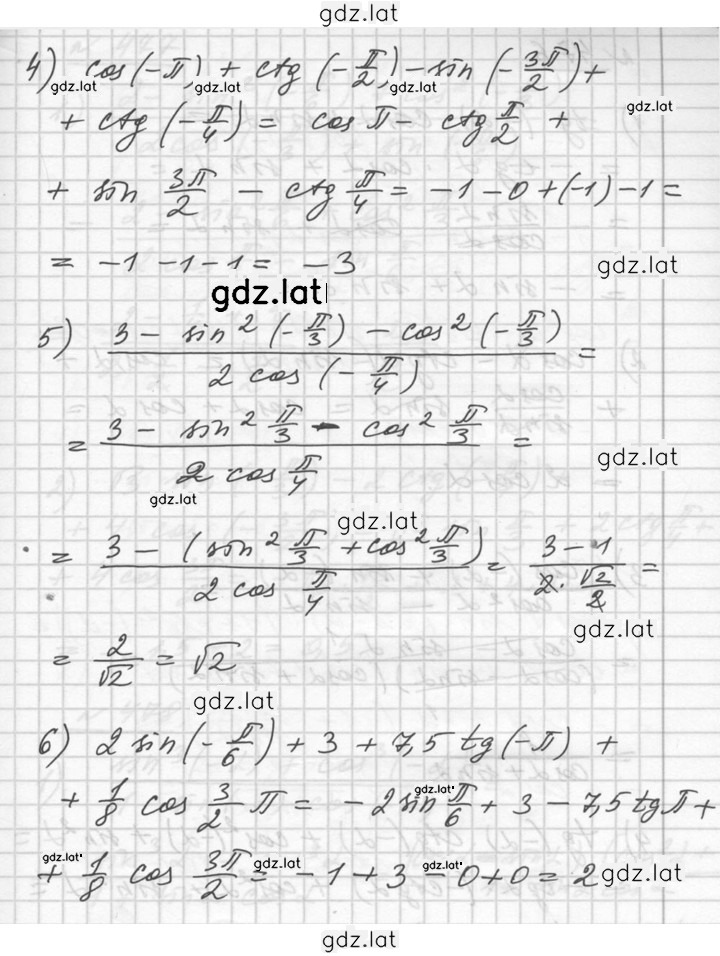 gdz.lat
4) cos(-π) + ctg(-π/2) - sin(-3π/2) +
gdz.lat gdz.lat gdz.lat gdz.lat
+ ctg(-π/4) = cos π - ctg π/2 +
+ sin 3π/2 - ctg π/4 = -1 - 0 + (-1) - 1 =
= -1 -1 - 1 = -3
gdz.lat
gdz.lat
5) (3 - sin² (-π/3) - cos² (-π/3)) / (2 cos (-π/4)) =
= (3 - sin² π/3 - cos² π/3) / (2 cos π/4) =
gdz.lat
gdz.lat
gdz.lat
= (3 - (sin² π/3 + cos² π/3)) / (2 cos π/4) = (3 - 1) / (2 · √2/2) =
gdz.lat
= 2/√2 = √2
gdz.lat
6) 2 sin(-π/6) + 3 + 7,5 tg(-π) +
gdz.lat
+ 1/8 cos 3/2 π = -2 sin π/6 + 3 - 7,5 tg π +
gdz.lat gdz.lat gdz.lat
+ 1/8 cos 3π/2 = -1 + 3 - 0 + 0 = 2
gdz.lat
gdz.lat